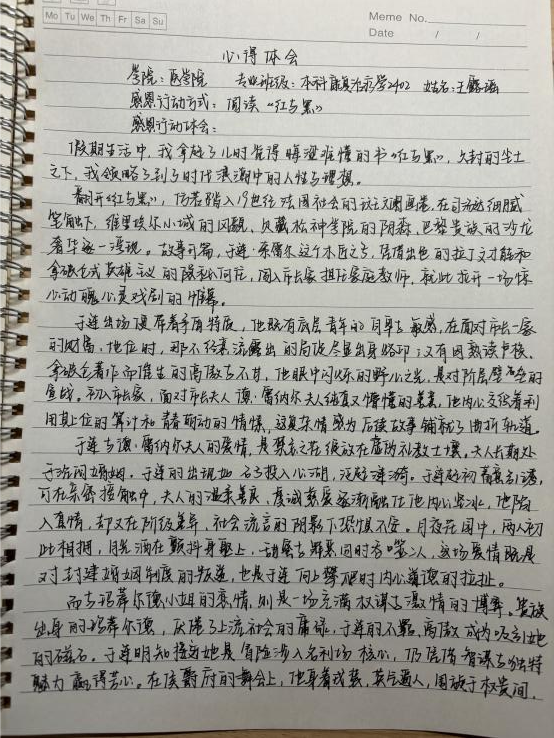 Mo Tu We Th Fr Sa Su
Meme No.
Date / /
心得体会
学院：医学院 专业班级：本科康复治疗学2402 姓名：王
感恩行动方式：阅读“红与黑”
感恩行动体会：
假期生活中，我拿起了儿时觉得晦涩难懂的书“红与黑”，久封的尘土
之下，我领略了到了时代浪潮中的人性与理想。
翻开《红与黑》，仿若踏入19世纪法国社会的斑斓画卷，在司汤达细腻
笔触下，维里埃尔小城的风貌、贝藏松神学院的阴森、巴黎贵族的沙龙
奢华逐一浮现。故事开篇，于连·索雷尔这个木匠之子，凭借出色的拉丁文才能和
拿破仑式英雄主义的隐秘向往，闯入市长家担任家庭教师，就此拉开一场惊
心动魄心灵戏剧的帷幕。
于连出场便带着矛盾特质，他既有底层青年的自卑与敏感，在面对市长一家
的财富、地位时，那不经意流露出的局促尽显出身烙印；又有因熟读卢梭、
拿破仑著作而催生的高傲与不甘，他眼中闪烁的野心之光，是对阶层壁垒的
宣战。初入市长家，面对市长夫人德·雷纳尔夫人纯真又懵懂的善意，他内心交织着利
用其上位的算计和青春萌动的情愫，这复杂情感为后续故事铺就了曲折轨道。
于连与德·雷纳尔夫人的爱情，是禁忌之花绽放在腐朽礼教土壤，夫人长期处
于沉闷婚姻，于连的出现如石子投入心湖，泛起涟漪。于连起初蓄意引诱，
可在亲密接触中，夫人的温柔善良、真诚慈爱逐渐融化他内心坚冰，他陷
入真情，却又在阶级差异、社会流言的阴影下恐惧不安。月夜花园中，两人初
次相拥，月光洒在颤抖身躯上，甜蜜与罪恶同时吞噬二人，这场爱情既是
对封建婚姻制度的叛逆，也是于连向上攀爬时内心道德的拉扯。
而与玛蒂尔德小姐的恋情，则是一场充满权谋与激情的博弈。贵族
出身的玛蒂尔德，厌倦了上流社会的庸碌，于连的不羁、高傲成为吸引她
的磁石。于连明知接近她是冒险涉入名利场核心，仍凭借智谋与独特
魅力赢得芳心。在侯爵府的舞会上，他身着戎装，英气逼人，周旋于权贵间，